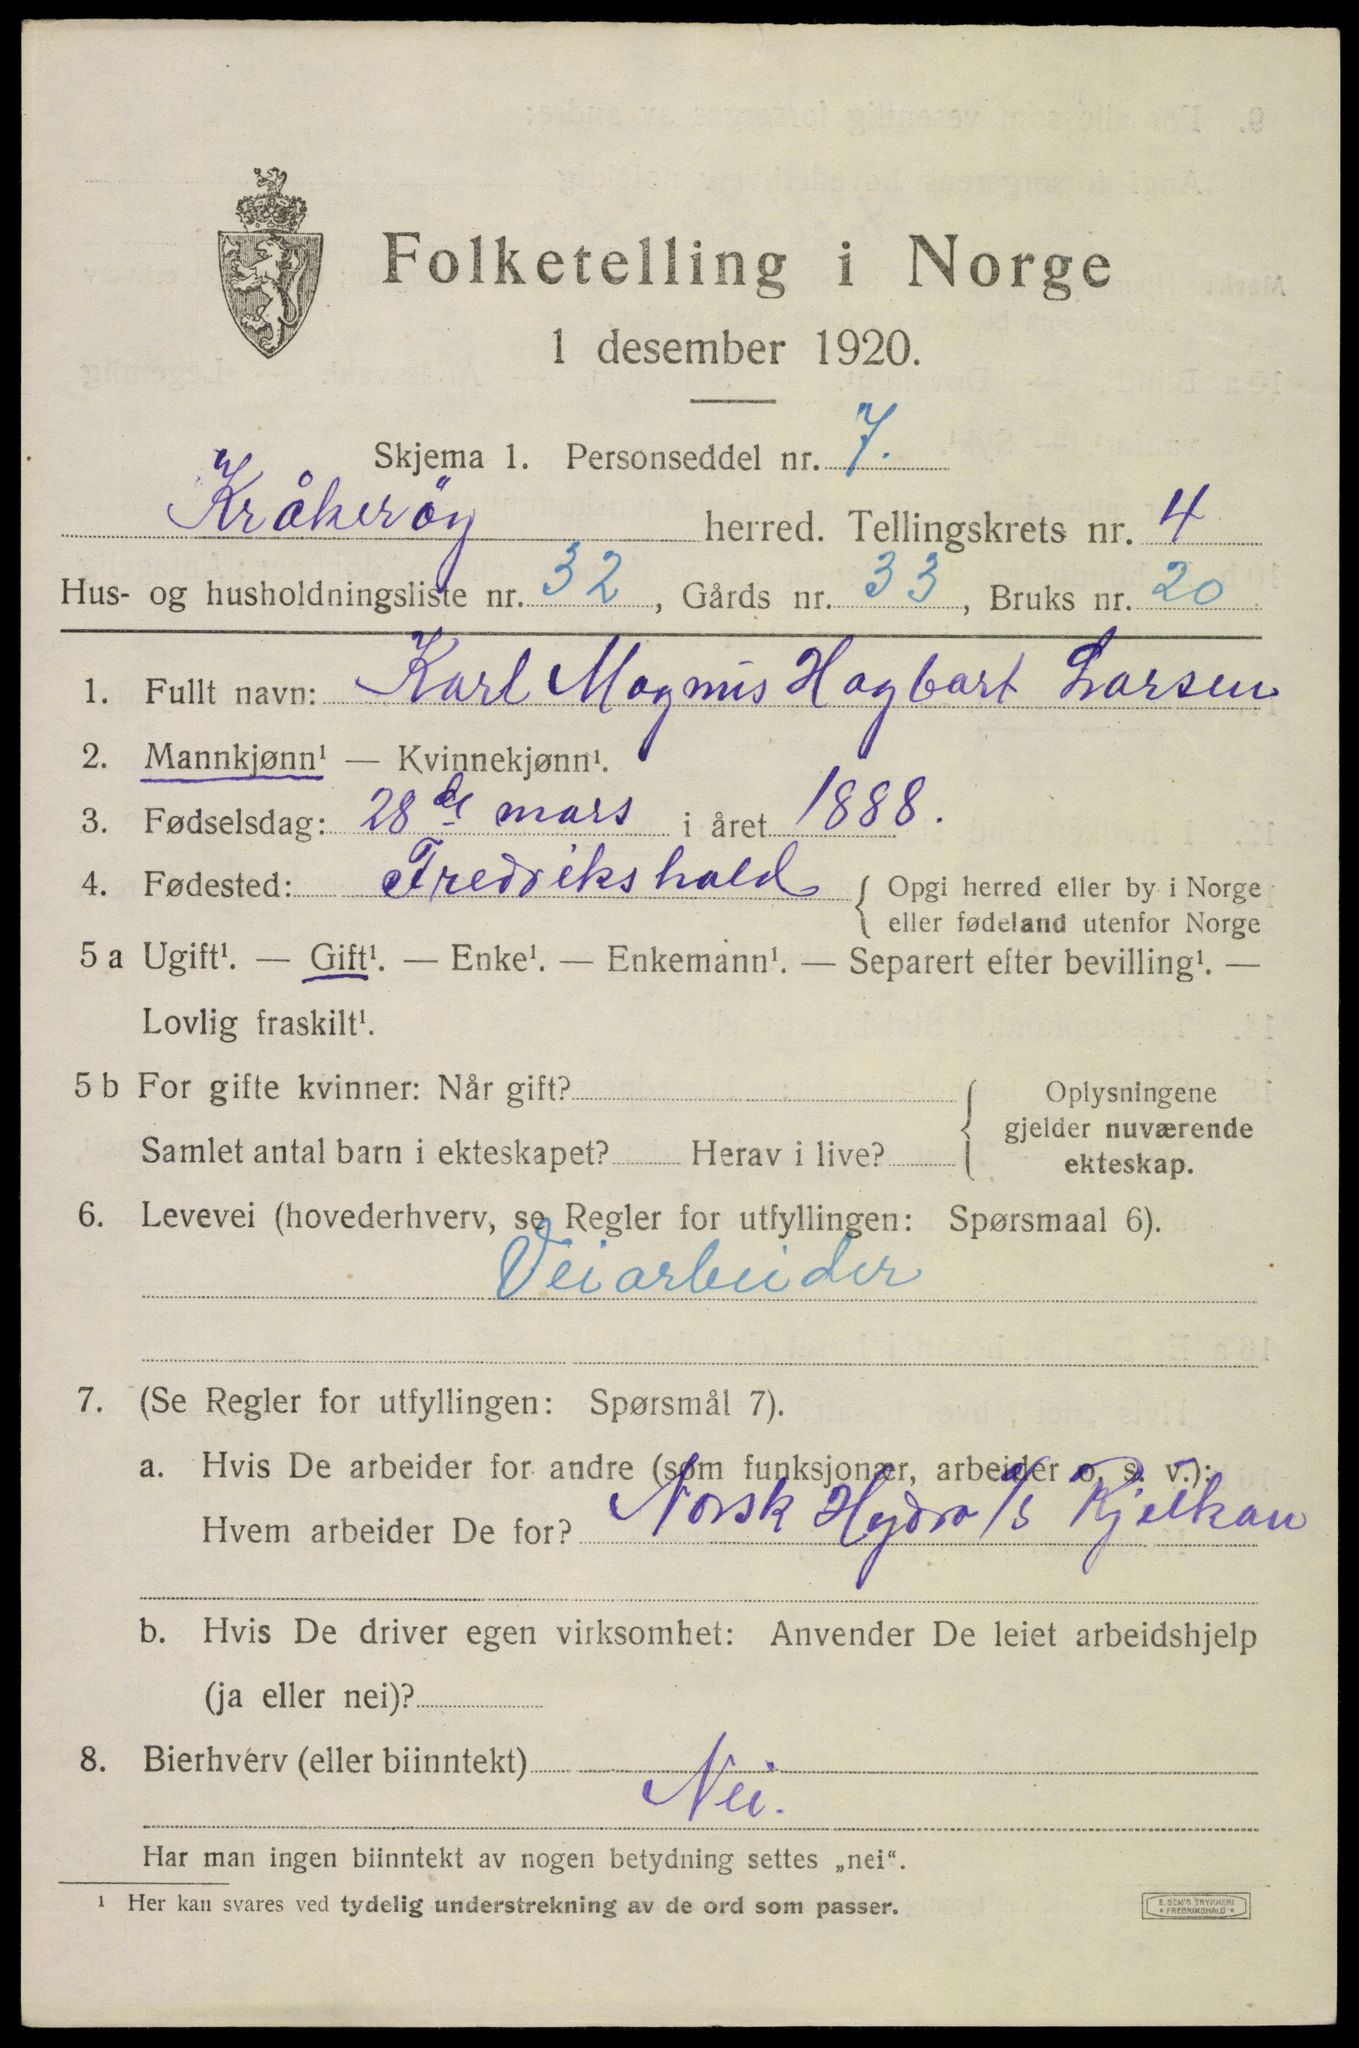 Folketelling i Norge
1 desember 1920.
Skjema 1. Personseddel nr. 7.
Kråkeröy herred. Tellingskrets nr. 4
Hus- og husholdningsliste nr. 32, Gårds nr. 33, Bruks nr. 20
1. Fullt navn: Karl Magnus Hagbart Larsen
2. Mannkjønn¹ — Kvinnekjønn¹.
3. Fødselsdag: 28de mars i året 1888.
4. Fødested: Fredrikshald { Opgi herred eller by i Norge
eller fødeland utenfor Norge
5 a Ugift¹. — Gift¹. — Enke¹. — Enkemann¹. — Separert efter bevilling¹. —
Lovlig fraskilt¹.
5 b For gifte kvinner: Når gift?
Samlet antal barn i ekteskapet? Herav i live?
{ Oplysningene
gjelder nuværende
ekteskap.
6. Levevei (hovederhverv, se Regler for utfyllingen: Spørsmaal 6).
Veiarbeider
7. (Se Regler for utfyllingen: Spørsmål 7).
a. Hvis De arbeider for andre (som funksjonær, arbeider o. s. v.):
Hvem arbeider De for? Norsk Hydro A/S Rjukan
b. Hvis De driver egen virksomhet: Anvender De leiet arbeidshjelp
(ja eller nei)?
8. Bierhverv (eller biinntekt)
Nei.
Har man ingen biinntekt av nogen betydning settes „nei“.
¹ Her kan svares ved tydelig understrekning av de ord som passer.
E. SEM'S TRYKKERI
• FREDRIKSHALD •